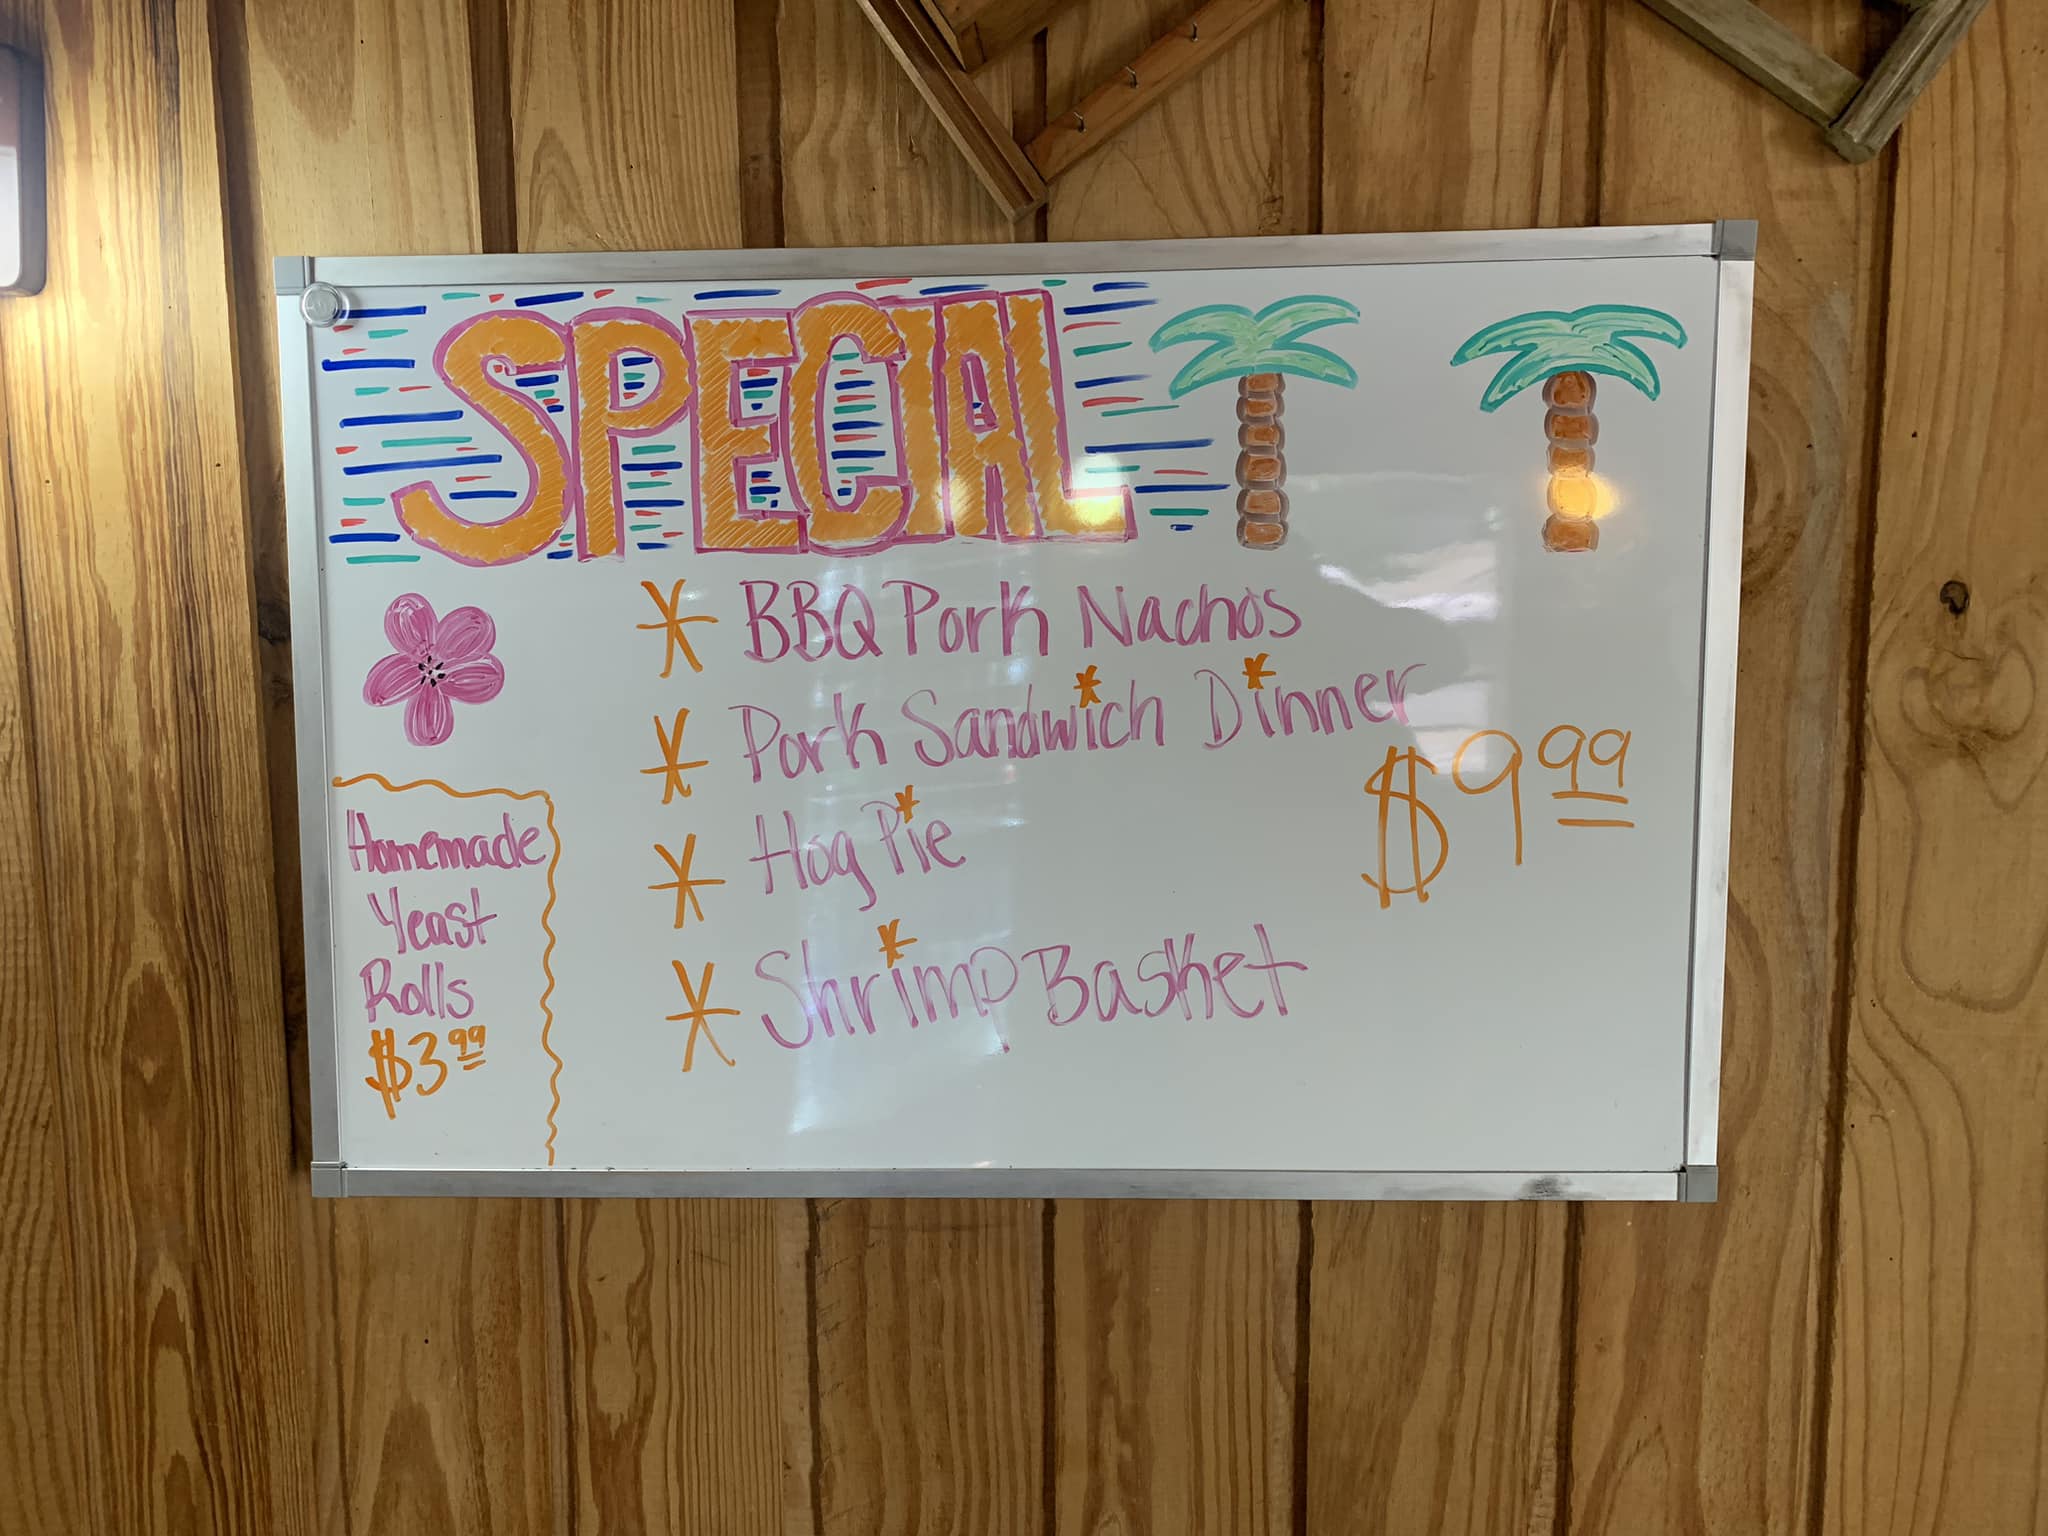 SPECIAL
BBQ Pork Nachos
Pork Sandwich Dinner
$9.99
Hog Pie
Shrimp Basket
Homemade
Yeast
Rolls
$3.99